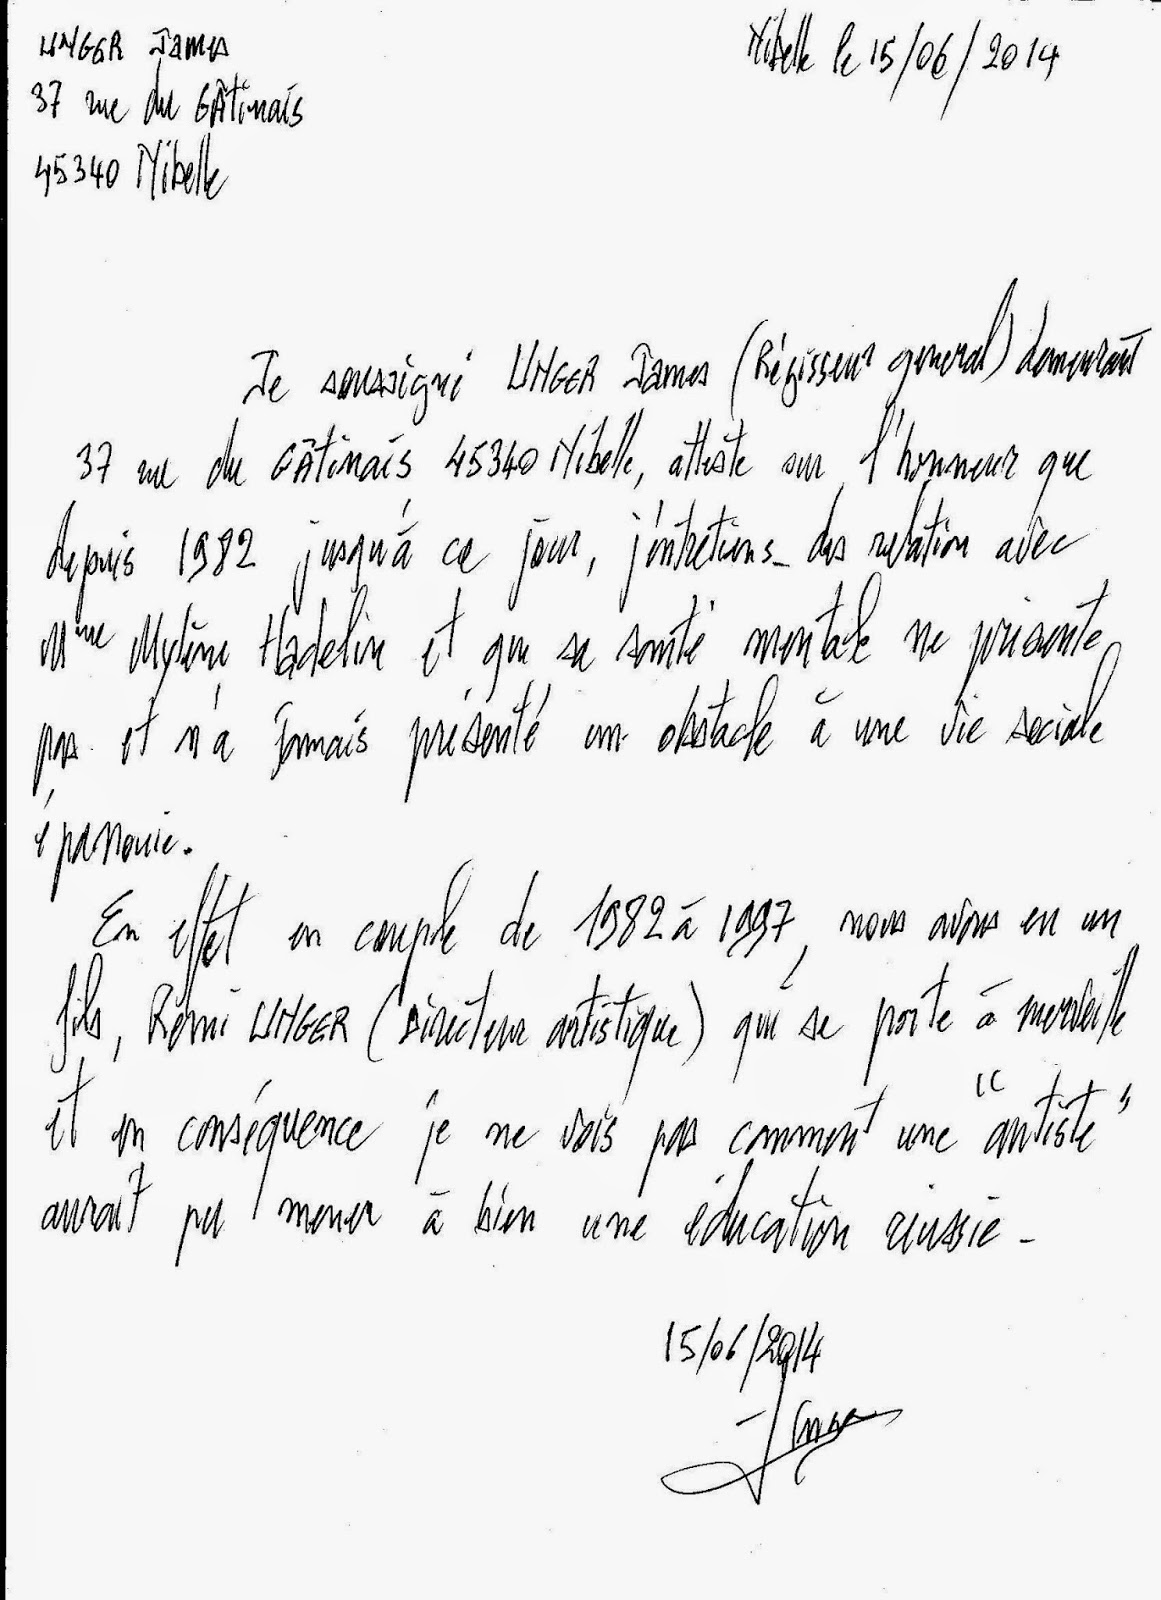 UNGER James
Nibelle le 15/06/2014
37 rue du GÂtinais
45340 Nibelle
Je soussigné UNGER James (Régisseur general) demeurant
37 rue du GÂtinais 45340 Nibelle, atteste sur l'honneur que
depuis 1982 jusqu'à ce jour, j'entretiens des relation avec
Mme Mylène Hadelin et que sa santé mentale ne présente
pas et n'a jamais présenté un obstacle à une vie sociale
épanouie.
En effet en couple de 1982 à 1997, nous avons eu un
fils, Rémi UNGER (Directeur artistique) qui se porte à merveille
et en conséquence je ne vois pas comment une "artiste"
aurait pu mener à bien une éducation réussie -
15/06/2014